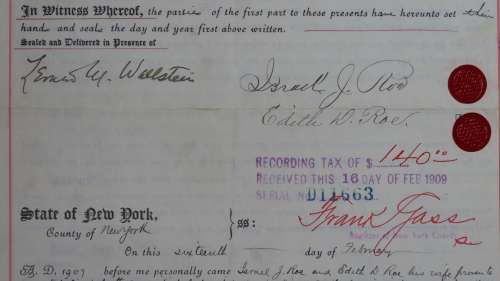 In Witness Whereof, the parties of the first part to these presents have hereunto set their
hand and seals the day and year first above written.
Sealed and Delivered in Presence of
Israel J. Roe
Edith D. Roe.
RECORDING TAX OF $ 140.00
RECEIVED THIS 16 DAY OF FEB 1909
SERIAL NO. D11663
Frank Gass
Register of New York County
State of New York,
County of New York
ss:
On this sixteenth day of February
A. D. 1907 before me personally came Israel J. Roe and Edith D. Roe his wife